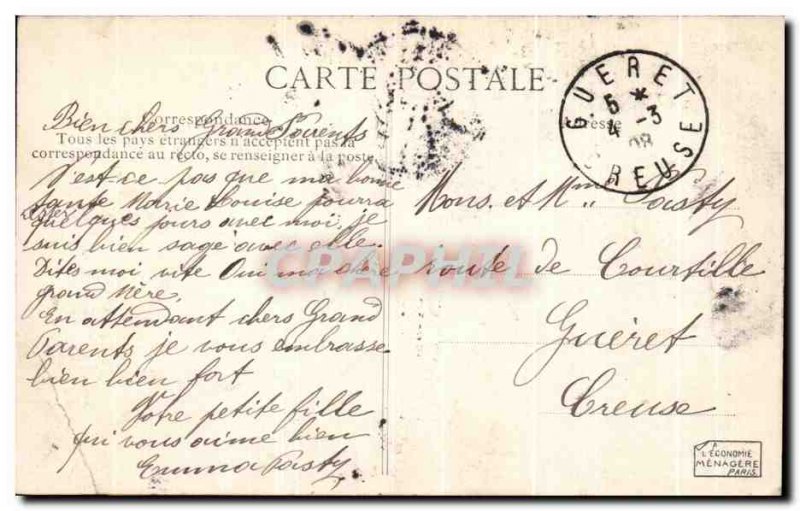 CARTE POSTALE
Correspondance
Bien chers Grands Parents
Tous les pays étrangers n'acceptent pas la
correspondance au recto, se renseigner à la poste
N'est-ce pas que ma bonne
tante Marie Louise pourra
rester
quelques jours avec moi, je
suis bien sage avec elle.
Dites moi vite Oui ma chère
grand Mère.
En attendant chers Grand
Parents je vous embrasse
bien bien fort
Votre petite fille
qui vous aime bien
Emma Pasty
GUERET
5 *
4 -3
08
CREUSE
resse
Mons. et Mme Pasty
route de Courtille
Guéret
Creuse
A
L'ÉCONOMIE
MÉNAGÈRE
PARIS
CPAPHIL